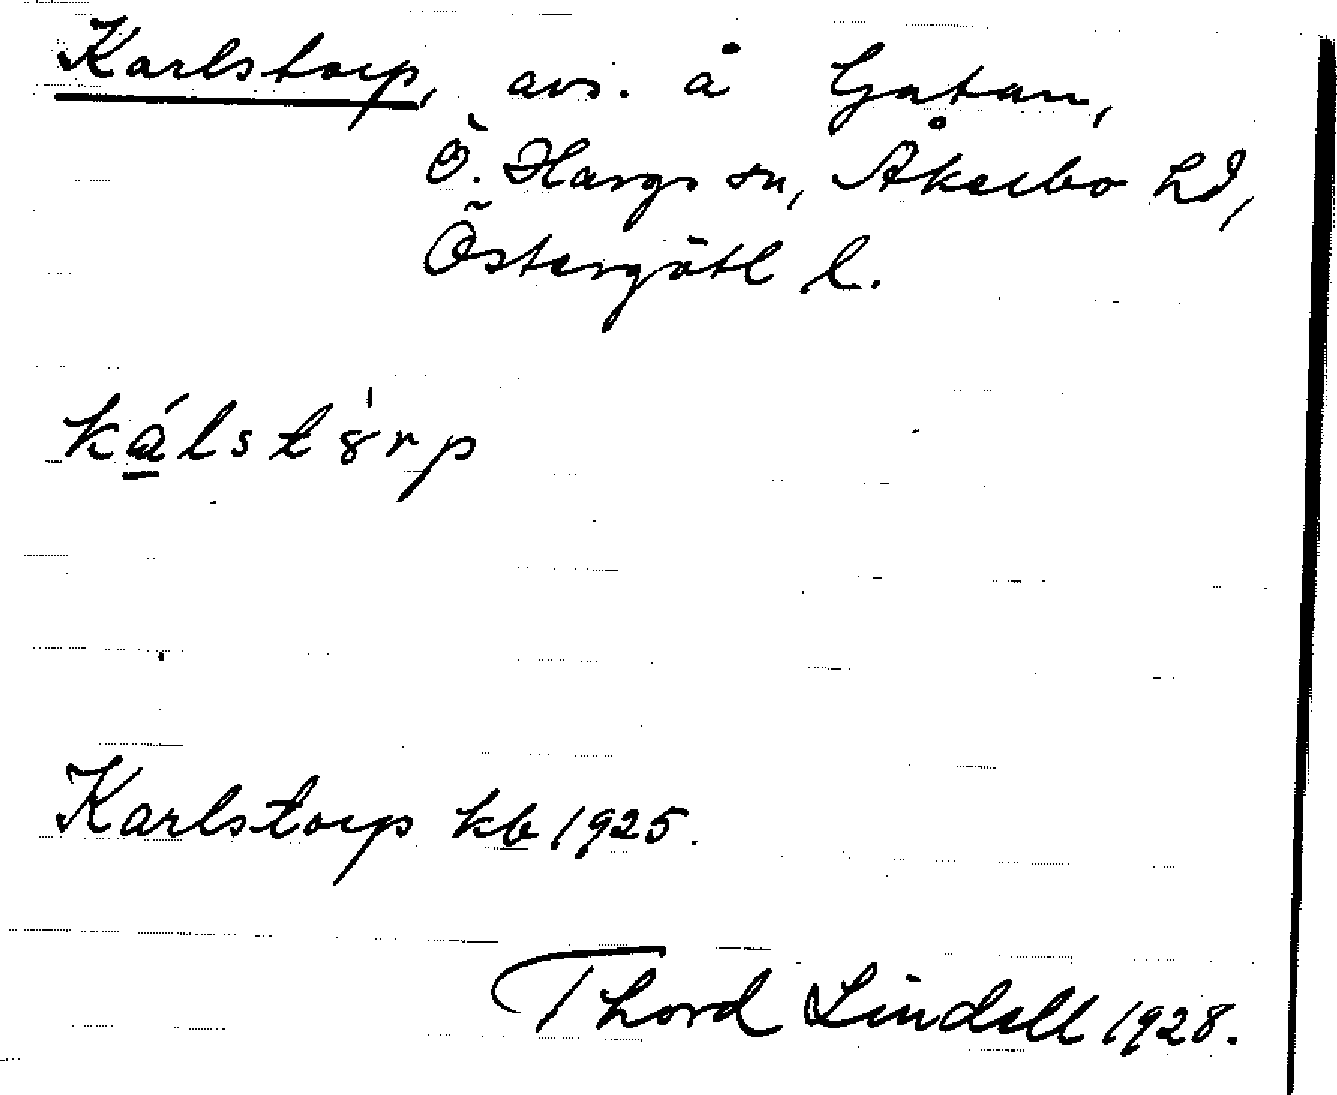 Karlstorp, avs. å Gatan,
Ö. Hargs sn, Åkerbo hd,
Östergötl l.
kálstȣ̍rp
Karlstorp kb 1925.
Thord Lindell 1928.